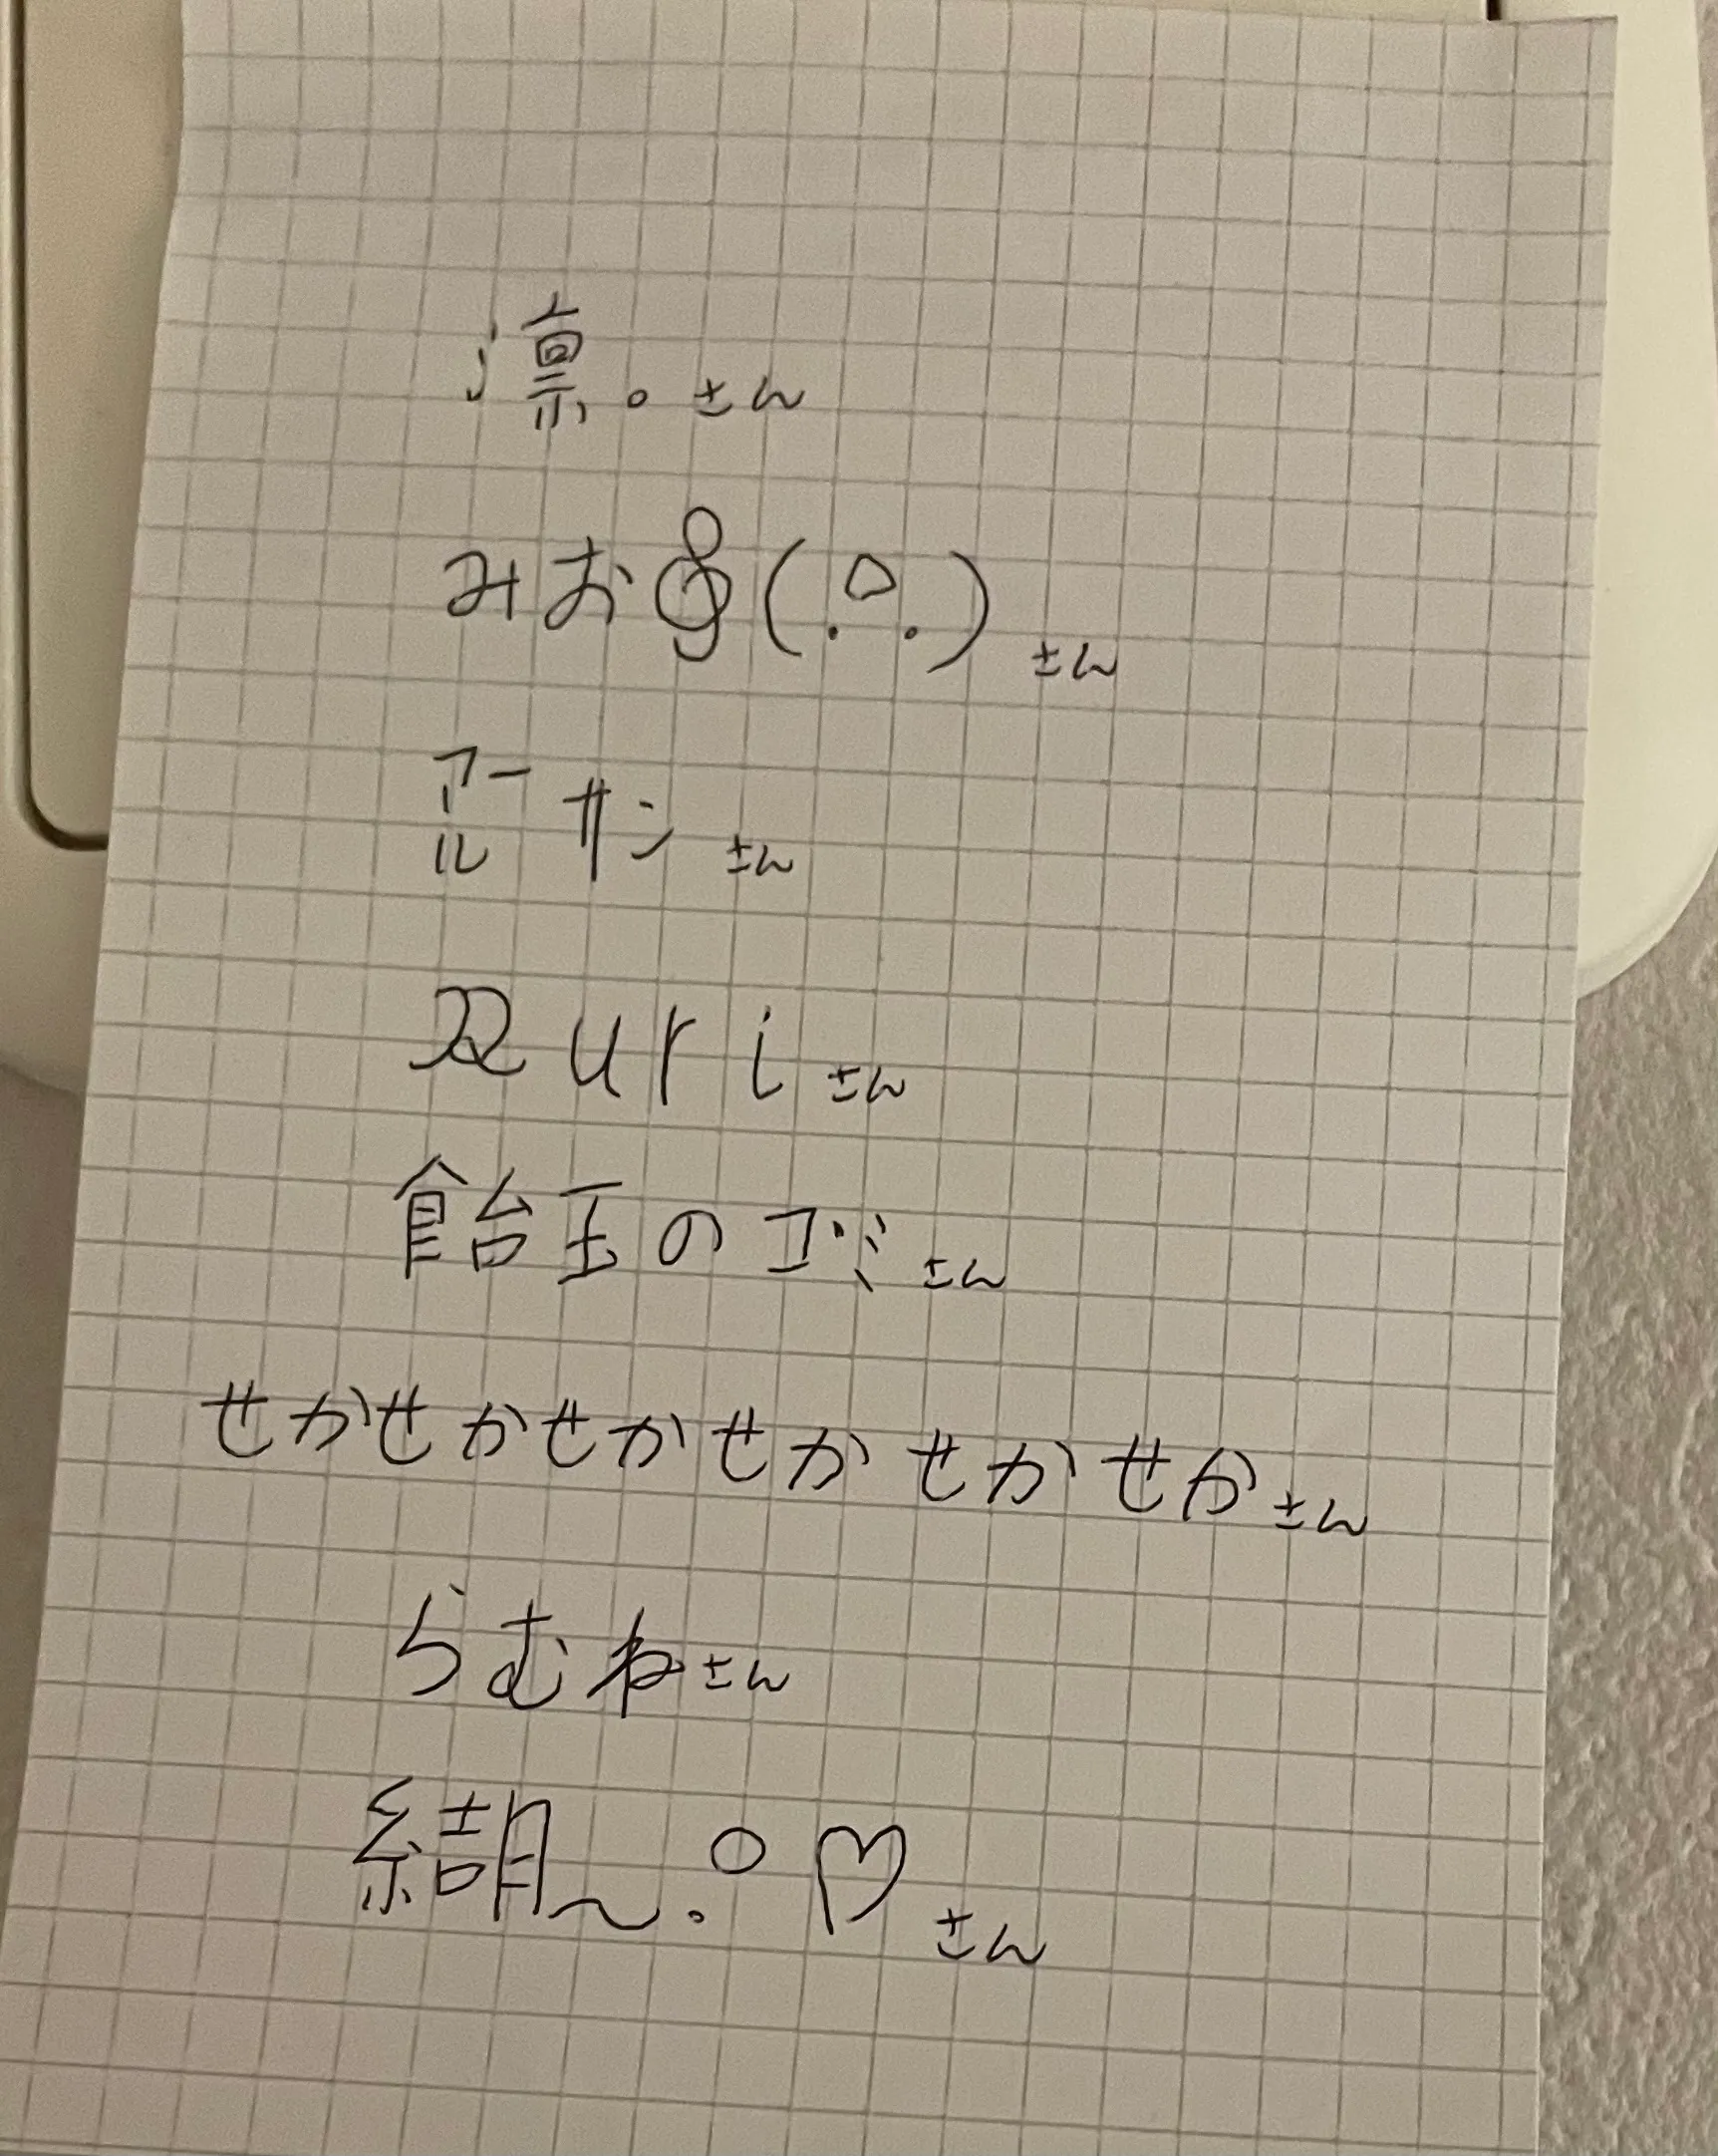 凛。さん
みお𝄞(.△.)さん
アールサンさん
Ruriさん
飴玉のゴミさん
せかせかせかせかせかせかさん
らむねさん
結月〜.○♡さん